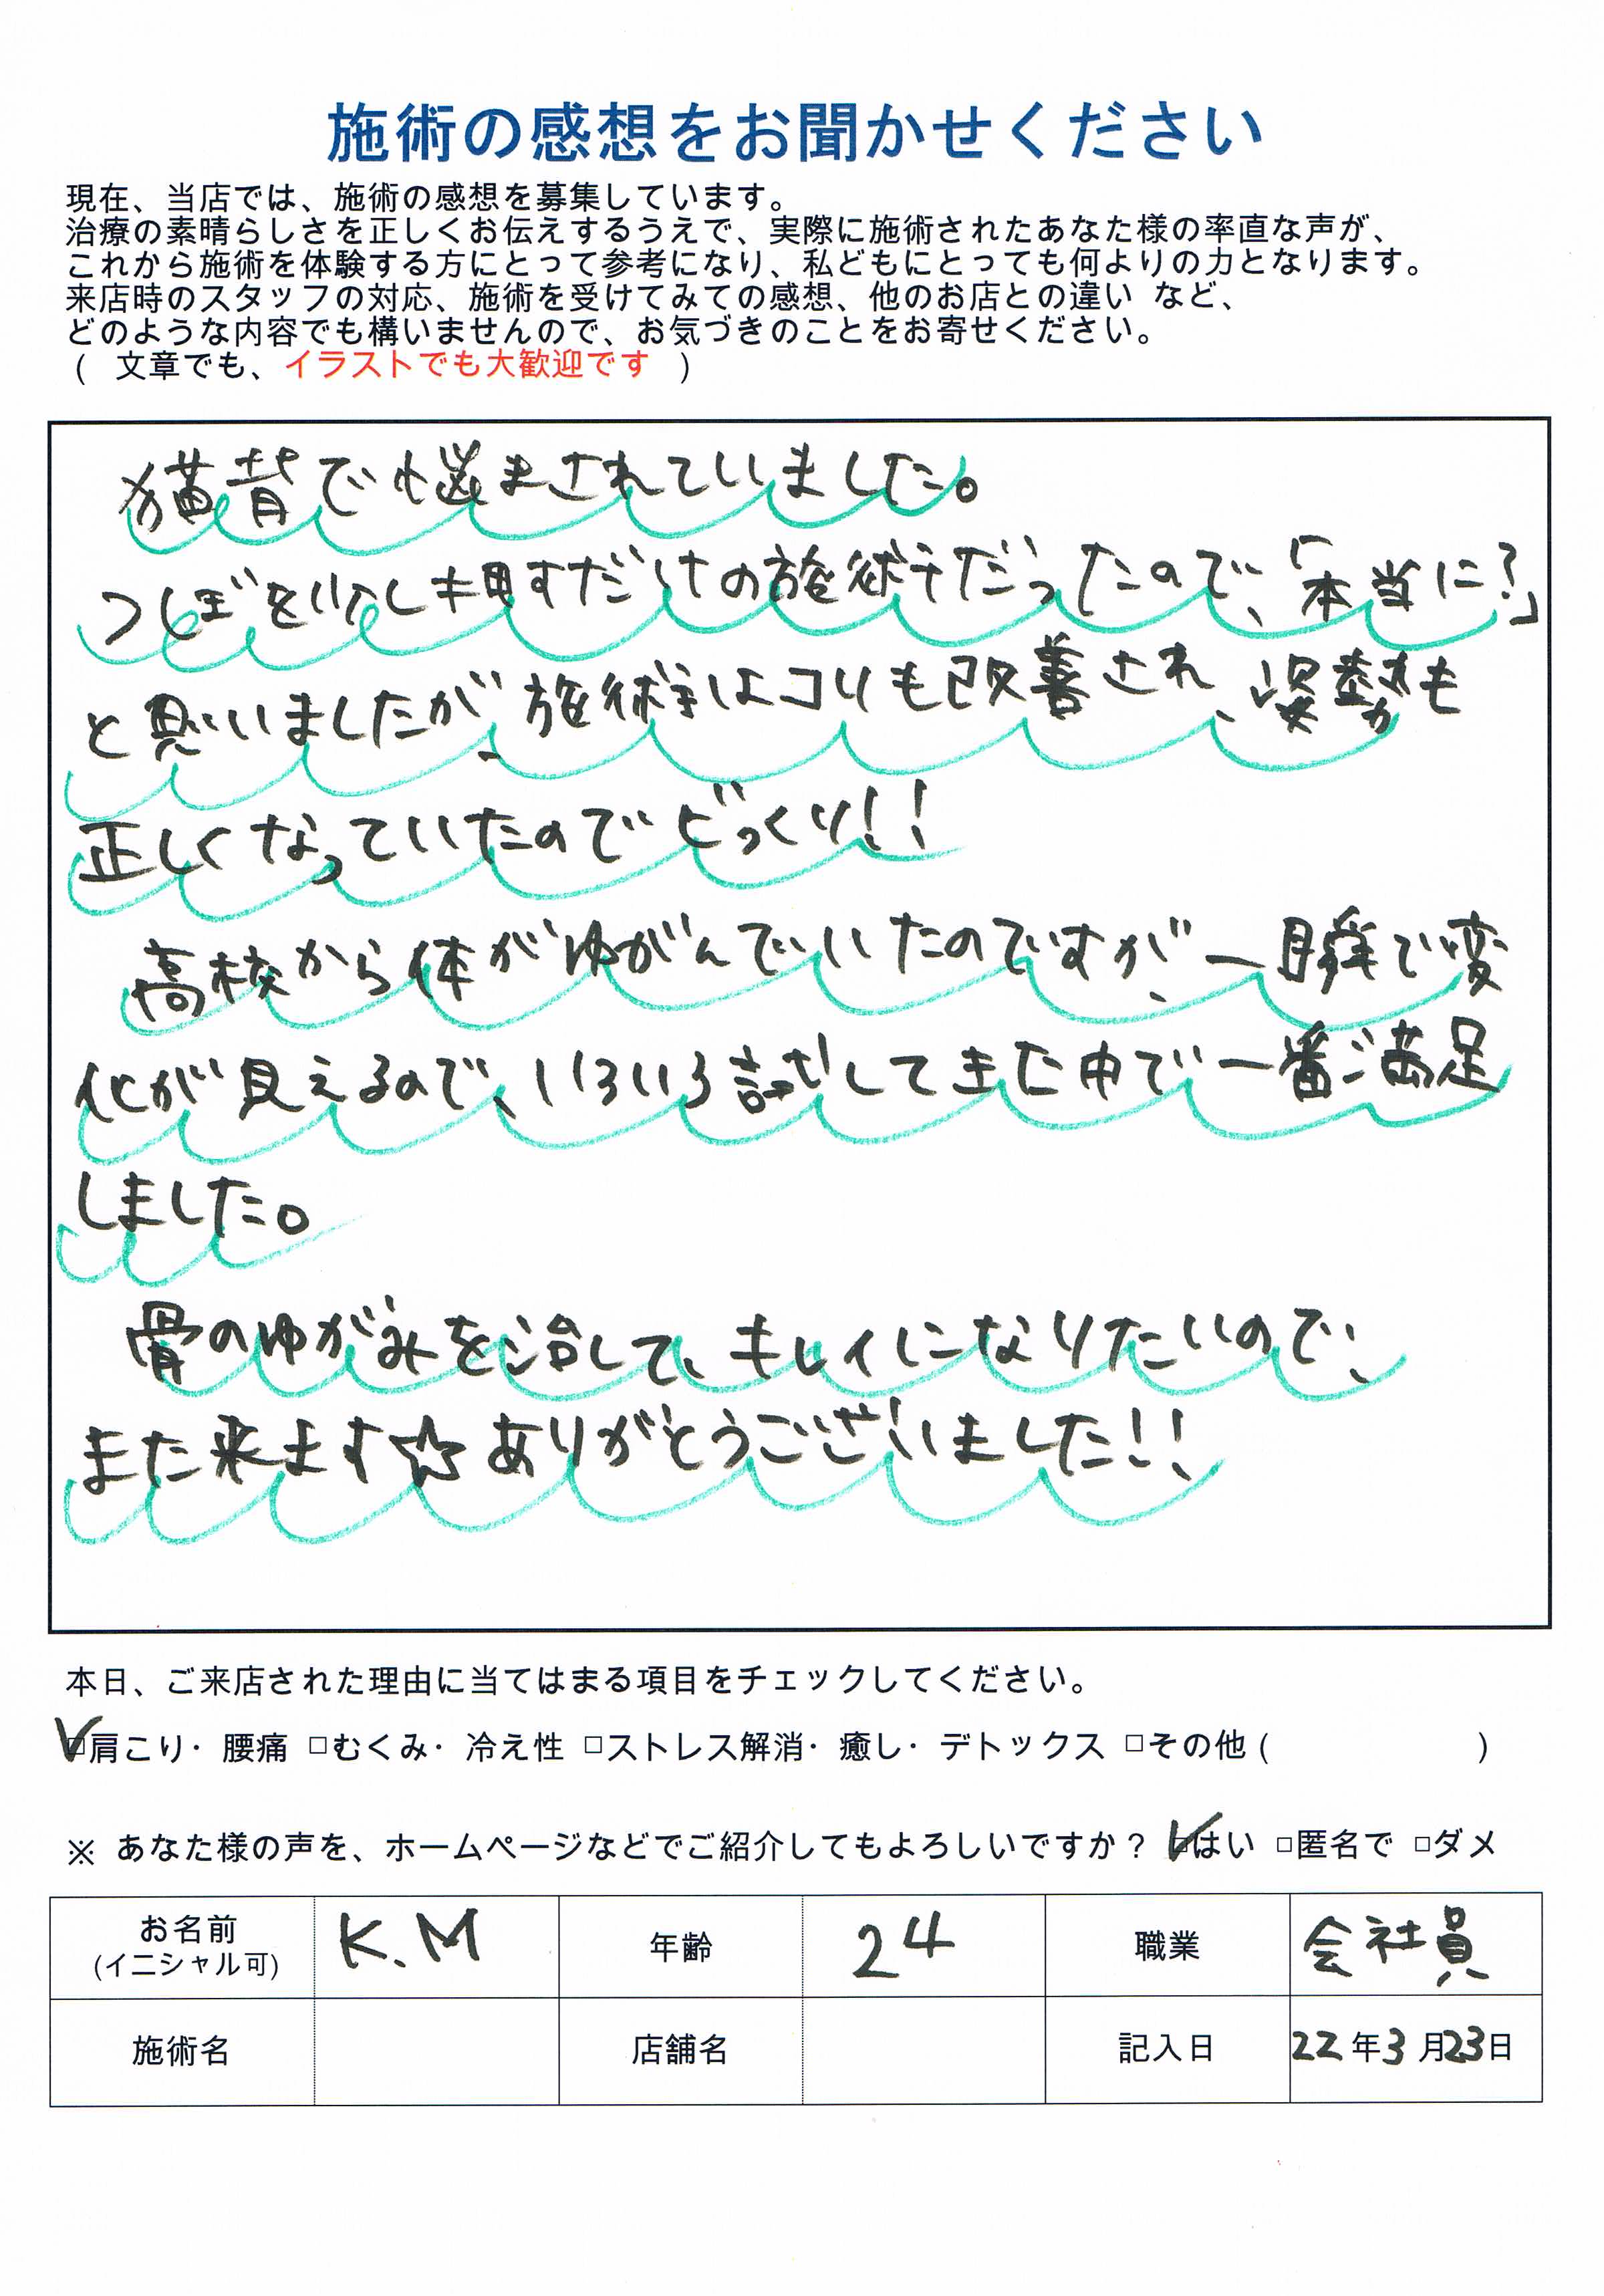 施術の感想をお聞かせください
現在、当店では、施術の感想を募集しています。
治療の素晴らしさを正しくお伝えするうえで、実際に施術されたあなた様の率直な声が、
これから施術を体験する方にとって参考になり、私どもにとっても何よりの力となります。
来店時のスタッフの対応、施術を受けてみての感想、他のお店との違い など、
どのような内容でも構いませんので、お気づきのことをお寄せください。
( 文章でも、イラストでも大歓迎です )
猫背で悩まされていました。
つぼを少し押すだけの施術だったので、「本当に?」
と思いましたが、施術はコリも改善され、姿勢も
正しくなっていたのでびっくり!!
高校から体がゆがんでいたのですが、一瞬で変
化が見えるので、いろいろ試してきた中で一番ご満足
しました。
骨のゆがみを治して、キレイになりたいので、
また来ます☆ありがとうございました!!
本日、ご来店された理由に当てはまる項目をチェックしてください。
☑肩こり・腰痛 □むくみ・冷え性 □ストレス解消・癒し・デトックス □その他 ( )
※ あなた様の声を、ホームページなどでご紹介してもよろしいですか？ ☑はい □匿名で □ダメ
お名前 (イニシャル可) K.M 年齢 24 職業 会社員
施術名 店舗名 記入日 22年3月23日